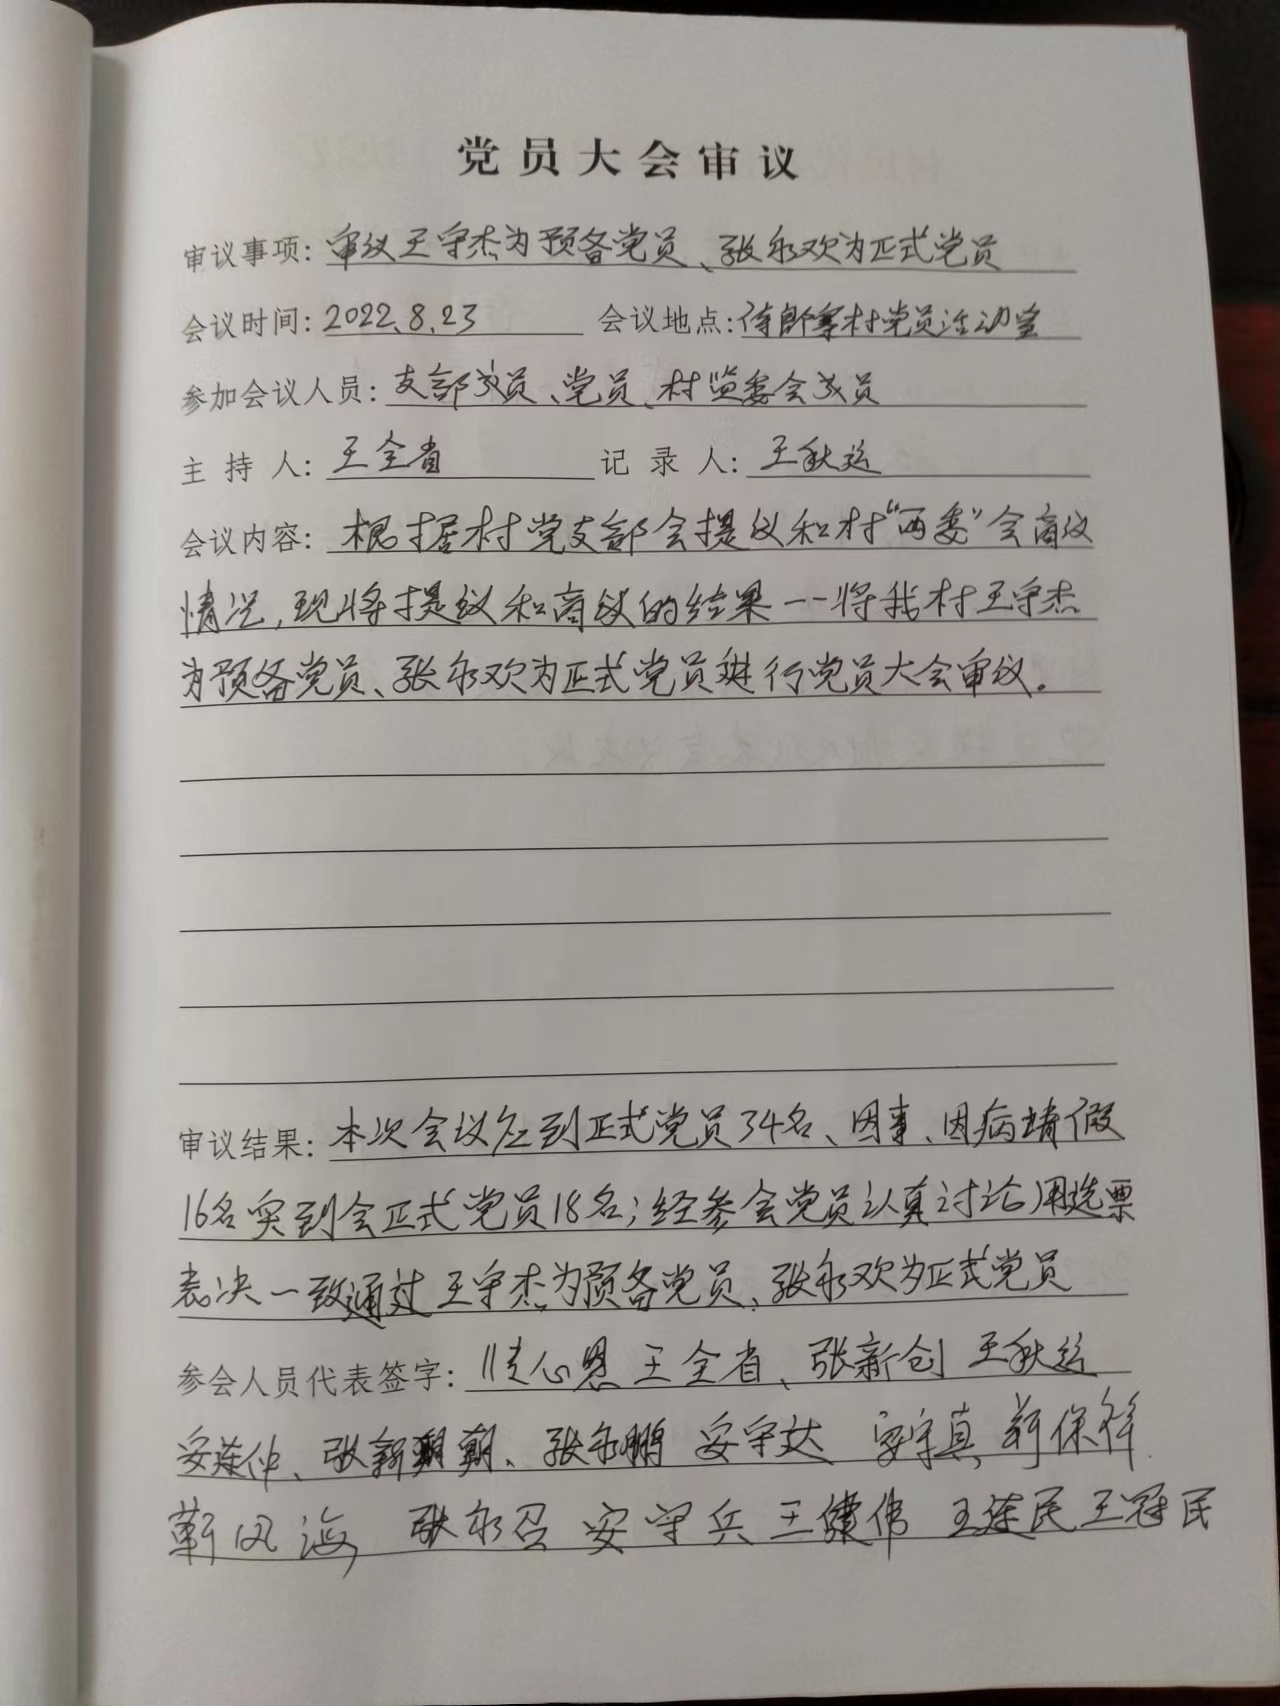 党员大会审议
审议事项:审议王守杰为预备党员、张永欢为正式党员
会议时间:2022.8.23 会议地点:侍郎寨村党员活动室
参加会议人员:支部成员、党员、村监委会成员
主持人:王全省 记录人:王秋运
会议内容:根据村党支部会提议和村“两委”会商议
情况,现将提议和商议的结果--将我村王守杰
为预备党员、张永欢为正式党员进行党员大会审议。
审议结果:本次会议应到正式党员34名、因事、因病请假
16名实到会正式党员18名;经参会党员认真讨论用选票
表决一致通过王守杰为预备党员、张永欢为正式党员
参会人员代表签字: 王全省、张新创 王秋运
安莲仲、张新朝、张永鹏 安守达 安守真 靳保祥
靳凤海 张永召 安守兵 王健伟 王莲民 王冠民